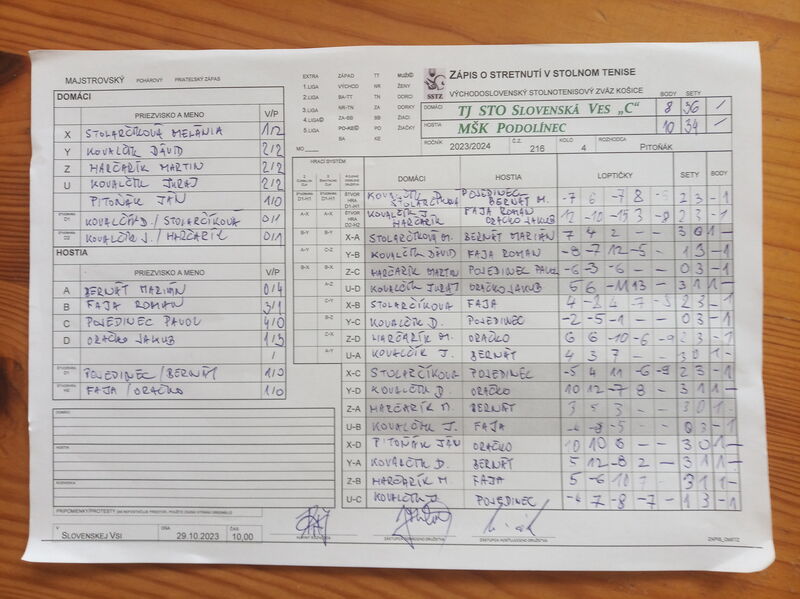 MAJSTROVSKÝ POHÁROVÝ PRIATEĽSKÝ ZÁPAS
DOMÁCI
PRIEZVISKO A MENO V/P
X STOLARČÍKOVÁ MELÁNIA 1/2
Y KOVALČÍK DÁVID 2/2
Z HARČARÍK MARTIN 2/2
U KOVALČÍK JURAJ 2/2
PITOŇÁK JÁN 1/0
D1 KOVALČÍK D./STOLARČÍKOVA 0/1
D2 KOVALČÍK J./HARČARÍK 0/1
HOSTIA
PRIEZVISKO A MENO V/P
A BERNÁT MARIÁN 0/4
B FAJA ROMAN 3/1
C POJEDINEC PAVOL 4/0
D ORAČKO JAKUB 1/3
/
D1 POJEDINEC/BERNÁT 1/0
FAJA/ORAČKO 1/0
DOMÁCI
HOSTIA
ROZHODCA
V SLOVENSKEJ VSI DŇA 29.10.2023 ČAS 10,00
EXTRA ZÁPAD TT MUŽI
1.LIGA VÝCHOD NR ŽENY
2.LIGA BA-TT TN DORCI
3.LIGA NR-TN ZA DORKY
4.LIGA ZA-BB BB ŽIACI
5.LIGA PO-KE PO ŽIAČKY
BA KE
MO
SSTZ
ZÁPIS O STRETNUTÍ V STOLNOM TENISE
VÝCHODOSLOVENSKÝ STOLNOTENISOVÝ ZVÄZ KOŠICE BODY SETY
DOMÁCI TJ STO SLOVENSKÁ VES „C“ 8 36 /
HOSTIA MŠK PODOLÍNEC 10 34 /
ROČNÍK 2023/2024 Č.Z. 216 KOLO 4 ROZHODCA PITOŇÁK
HRACÍ SYSTÉM DOMÁCI HOSTIA LOPTIČKY SETY BODY
D1-H1 KOVALČÍK D. STOLARČÍKOVA POJEDINEC BERNÁT M. -7 6 -7 8 2 3 - 1
D2-H2 KOVALČÍK J. HARČARÍK FAJA ROMAN ORAČKO JAKUB 12 -10 -15 3 -8 2 3 - 1
X-A STOLARČÍKOVÁ M. BERNÁT MARIÁN 7 4 2 - - 3 0 1 -
Y-B KOVALČÍK DÁVID FAJA ROMAN -8 -7 12 -5 - 1 3 - 1
Z-C HARČARÍK MARTIN POJEDINEC PAVOL -6 -3 -6 - - 0 3 - 1
U-D KOVALČÍK JURAJ ORAČKO JAKUB 5 6 -11 13 - 3 1 1 -
X-B STOLARČÍKOVA FAJA 4 4 -7 2 3 - 1
Y-C KOVALČÍK D. POJEDINEC -2 -5 -1 - - 0 3 - 1
Z-D HARČARÍK M. ORAČKO 6 6 -10 -6 -9 2 3 - 1
U-A KOVALČÍK J. BERNÁT 4 3 7 - - 3 0 1 -
X-C STOLARČÍKOVA POJEDINEC -5 4 11 -6 -9 2 3 - 1
Y-D KOVALČÍK D. ORAČKO 10 12 -7 8 - 3 1 1 -
Z-A HARČARÍK M. BERNÁT 3 5 3 - - 3 0 1 -
U-B KOVALČÍK J. FAJA -8 -5 - - 0 3 - 1
X-D PITOŇÁK JÁN ORAČKO 10 10 6 - - 3 0 1 -
Y-A KOVALČÍK D. BERNÁT 5 12 -8 2 - 3 1 1 -
Z-B HARČARÍK M. FAJA 5 -6 10 7 - 3 1 1 -
U-C KOVALČÍK J. POJEDINEC 7 -8 -7 - 1 3 - 1